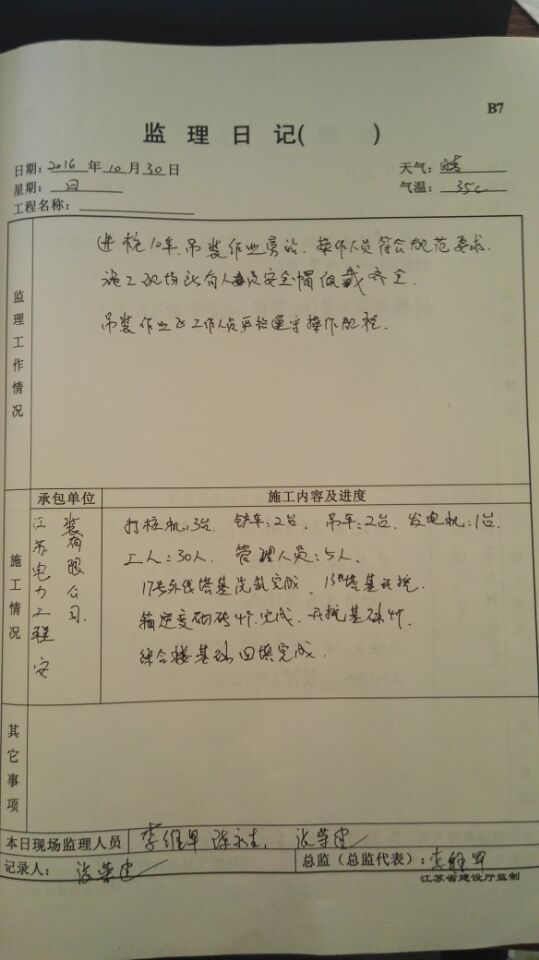 B7
监 理 日 记( )
日期: 2016 年 10 月 30 日
天气: 晴
星期: 日
气温: 35℃
工程名称:
监理工作情况
进 桩 10车. 吊装作业旁站. 操作人员符合规范要求.
施工现场所有人员安全帽佩戴齐全.
吊装作业及工作人员严格遵守操作规程.
施工情况
承包单位
施工内容及进度
江苏电力工程安装有限公司.
打桩机:3台. 铲车:2台. 吊车:2台. 发电机:1台.
工人:30人. 管理人员:5人.
17号外线塔基浇筑完成. 13#塔基开挖.
箱逆变砌砖4个.完成. 开挖基础4个.
综合楼基础回填完成.
其它事项
本日现场监理人员 李维军 张荣建
记录人: 张荣建
总监(总监代表): 李维军
江苏省建设厅监制